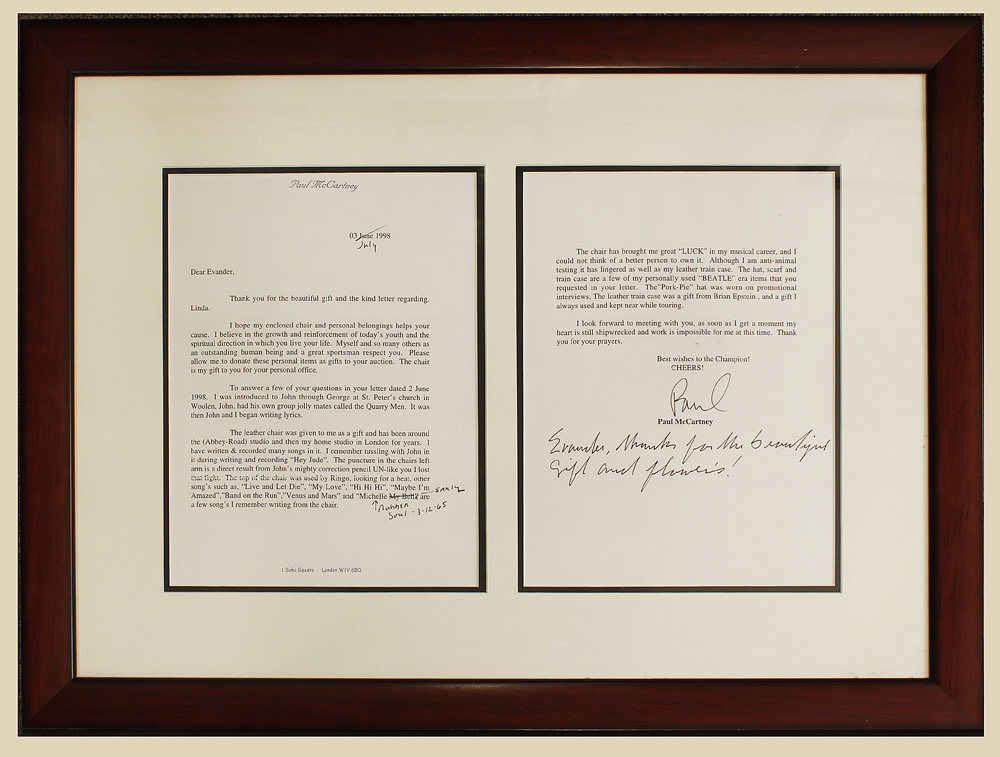 Paul McCartney
03 June 1998
July
Dear Evander,
Thank you for the beautiful gift and the kind letter regarding,
Linda.
I hope my enclosed chair and personal belongings helps your
cause. I believe in the growth and reinforcement of today's youth and the
spiritual direction in which you live your life. Myself and so many others as
an outstanding human being and a great sportsman respect you. Please
allow me to donate these personal items as gifts to your auction. The chair
is my gift to you for your personal office.
To answer a few of your questions in your letter dated 2 June
1998. I was introduced to John through George at St. Peter's church in
Woolen, John, had his own group jolly mates called the Quarry Men. It was
then John and I began writing lyrics.
The leather chair was given to me as a gift and has been around
the (Abbey-Road) studio and then my home studio in London for years. I
have written & recorded many songs in it. I remember tussling with John in
it during writing and recording "Hey Jude". The puncture in the chairs left
arm is a direct result from John's mighty correction pencil UN-like you I lost
that fight. The top of the chair was used by Ringo, looking for a beat, other
song's such as, "Live and Let Die", "My Love", "Hi Hi Hi", "Maybe I'm
Amazed","Band on the Run","Venus and Mars" and "Michelle My Belle are
a few song's I remember writing from the chair.
↑ Rubber
Soul - 3-12-65
1 Soho Square · London W1V 6BQ
The chair has brought me great "LUCK" in my musical career, and I
could not think of a better person to own it. Although I am anti-animal
testing it has lingered as well as my leather train case. The hat, scarf and
train case are a few of my personally used "BEATLE" era items that you
requested in your letter. The"Pork-Pie" hat was worn on promotional
interviews, The leather train case was a gift from Brian Epstein , and a gift I
always used and kept near while touring.
I look forward to meeting with you, as soon as I get a moment my
heart is still shipwrecked and work is impossible for me at this time. Thank
you for your prayers.
Best wishes to the Champion!
CHEERS!
Paul
Paul McCartney
Evander, thanks for the beautiful
gift and flowers!